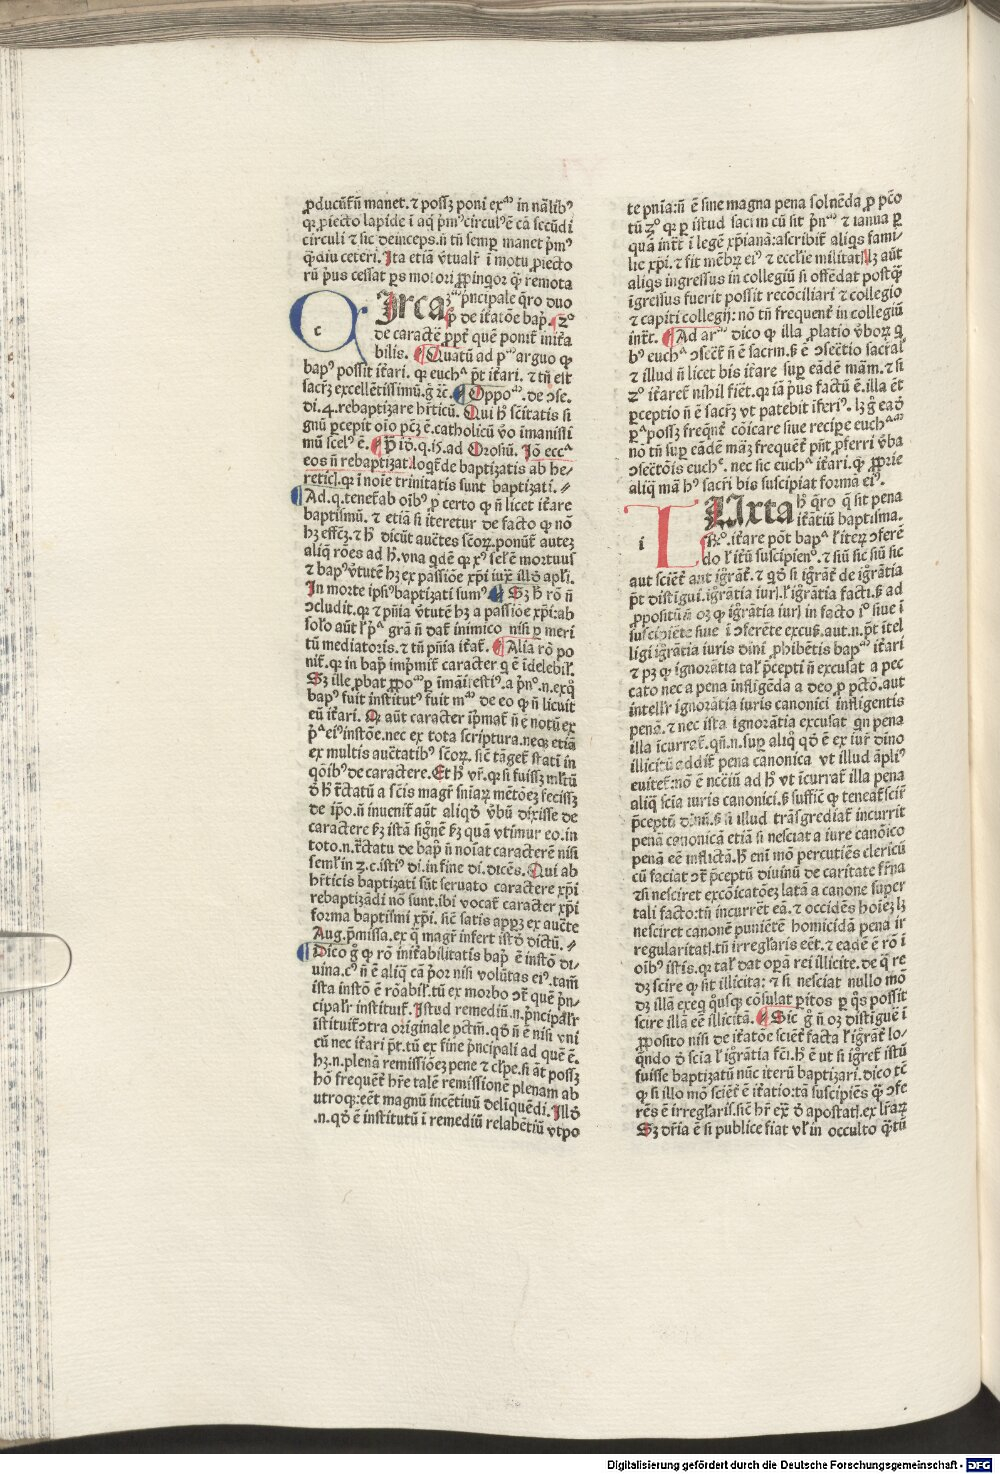 ꝓducūt̄ñ manet. ⁊ possꝫ poni exᵐ in nālibꝰ
qꝛ ꝓiecto lapide ī aq̄ pͥmꝰcirculꝰē cā secūdi
circuli ⁊ sic deinceps.ñ tñ semꝑ manet pͥmꝰ
q̄diu ceteri. Ita etiā v̓tualr̄ ī motu ꝓiecto
rū pͥus cessat ꝑs motori ꝓpinqoꝛ q̄ꝫ remota
Irca ꝫᵐ pͥncipale q̄ro duo
pͥ de it̓atōe bap̄. 2º
c
de caractē ꝓpt̓ quē ponit̄ init̓a
bilis. Quātū ad pᵐ arguo ꝙ
bapꝰ possit it̓ari. qꝛ euchᵃ pt̄ it̓ari. ⁊ tñ est
sacrꝫ excellētissimū.g̊ ꝛc̄. Oppoᵐ. de ↄse.
di.4. rebaptizare hr̄ticū. Qui h̄ scītatis si
gnū ꝑcepit oīo pc̄ꝫ ē.catholicū v̓o īmanissi
mū scelꝰ ē. P̄ id̄.q.ḣ.ad Orosiū. Iō eccᵃ
eos ñ rebaptizat.loqt̄ de baptizatis ab he⸗
reticꝭ.qꝛ ī noīe trinitatis sunt baptizati.
Ad.q.tenet̄ ab oībꝰ ꝓ certo ꝙ ñ licet it̓are
baptismū. ⁊ etiā si iteretur de facto ꝙ nō
hꝫ effcꝫ. ⁊ h̄ dicūt auc̄tes sc̄oꝝ.ponūt̄ autez
aliq̄ rōes ad h̄.vna qͥdē qꝛ xꝰ sel̄ e͂ mortuus
⁊ bapꝰ v̓tutē hꝫ ex passiōe xp̄i iux̄ illd̄ apl̄i.
In morte ipsiꝰ baptizati sumꝰ Sꝫ h̄ rō ñ
ↄcludit.qꝛ ⁊ pn̄ia v̓tutē hꝫ a passiōe xp̄i:ab
solo aūt l̓ pᵃ grā ñ dat̄ inimico nisi ꝑ meri
tū mediatoris. ⁊ tñ pn̄ia it̓at̄. Alia rō po
nit̄.qꝛ in bap̄ impͥmit̄ caracter q ē īdelebil̓.
Sꝫ ille ꝓbat ꝓpoᵐ ꝑ īmāifestiꝰ.a pͥnº.n.exq̊
bapꝰ fuit īstitutꝰ fuit mᵐ de eo ꝙ ñ licuit
eū it̓ari. Qꝛ aūt caracter īpͥmat̄ ñ ē notū ex
pᵃ eiꝰ instōe.nec ex tota scriptura.neqꝫ etiā
ex multis auc̄tatibꝰ sc̄oꝝ. sic̄ tāget̄ statī in
qōibꝰ de caractere.Et h̊ vr̄.qꝛ si fuissꝫ ml̄tū
d̓ h̄ t̓ctatū a sc̄is magr̄ sn̄iaꝝ mētōeꝫ fecissꝫ
de ip̄o.ñ inuenit̄ aūt aliqd̄ v̓bū dixisse de
caractere ẜꝫ istā signē ẜꝫ quā vtimur eo.in
toto.n.t̓ctatu de bap̄ ñ noīat caracterē nisi
semel̓ in ꝫ.c.istiꝰ di.in fine di.dicēs.Qui ab
hr̄ticis baptizati sūt seruato caractere xp̄i
rebaptizādi nō sunt.ibi vocat̄ caracter xp̄i
forma baptismi xp̄i. sic̄ satis appꝫ ex auc̄te
Aug.pͥmissa.ex q̄ magr̄ infert istd̄ dictū.
Dico g̊ ꝙ rō init̓abilitatis bap̄ ē instō di⸗
uina.cꝰ ñ ē aliq̄ cā pͥoꝛ nisi volūtas eiꝰ.tam̄
ista instō ē rōabil̓.tū ex morbo ↄt̓ quē pͥn⸗
cipalr̄ instituit̄.Istud remediū.n.pͥncipalr̄
īstituit̄ ↄtra originale pctm̄.qd̄ ñ ē nisi vni
cū nec it̓ari pt̄.tū ex fine pͥncipali ad quē ē.
hꝫ.n.plenā remissiōeꝫ pene ⁊ cl̓pe.si āt possꝫ
hō frequēt̓ hr̄e talē remissionē plenam ab
utroqꝫ:eēt magnū incētiuū delīquēdi.Illd̄
.n.qd̄ ē institutū ī remediū relabētiū vtpo
te pn̄ia:ñ ē sine magna pena soluēda ꝓ pc̄o
tū 2º qꝛ ꝑ istud sacm̄ cū sit pͥnᵐ ⁊ ianua ꝑ
quā intt̄ ī legē xp̄ianā:ascribit̄ aliqͥs fami⸗
lie xp̄i. ⁊ fit mēbꝝ eiꝰ ⁊ ecclie militātꝭ lꝫ aūt
aliqͥs ingressus in collegiū si offēdat postq̄ꝫ
īgressus fuerit possit recōciliari ⁊ collegio
⁊ capiti collegij: nō tñ frequent̓ in collegiū
int̄t. Ad arᵐ dico ꝙ illa ꝓlatio v̓boꝝ q̄
hꝰ euchᵃ ↄsect̄ ñ ē sacrm̄.ẜ ē ↄsec̄tio sacr̄al̓
⁊ illud ñ licet bis it̓are suꝑ eādē mām. ⁊ si
2º it̓aret̄ nihil fiet̄.qꝛ iā pͥus factū ē.illa et̄
ꝑceptio ñ ē sacrꝫ vt patebit īferiꝰ. lꝫ g̊ eadē
ꝑᵃ possꝫ freqn̄t̓ cōicare siue recipe euchᵃᵐ
nō tñ suꝑ eādē māꝫ frequēt̓ pn̄t ꝓferri v̓ba
ↄsec̄tōis euchͤ. nec sic euchᵃ it̓ari.qꝛ ꝓprie
aliq̄ mā hꝰ sacr̄i bis suscipiat forma eiꝰ.
Uxta h̊ q̄ro q̄ sit pena
it̓ātiū baptisma.
i
Rº.it̓are pōt bapᵃ l̓ iteꝝ ↄferē
do l̓ itū suscipiēn°. ⁊ siū sic siū sic
aut sciēt̓ aut igr̄āt̓. ⁊ qd̄ si igr̄āt̓ de igr̄ātia
pt̄ distīgui.igr̄ātia iurꝭ.l̓ igr̄ātia facti.ẜ ad
ꝓpositū ñ oꝫ ꝙ igr̄ātia iurꝭ in facto īº siue ī
suscipiēte siue ī ↄferēte excusꝫ.aut.n.pt̄ itel
ligi igr̄ātia iuris diui ꝓhibētis bapᵐ it̓ari
⁊ pꝫ ꝙ ignorātia tal̓ pͥcepti ñ excusat a pec
cato nec a pena īfligēda a deo ꝓ pctō.aut
intellr̄ ignorātia iuris canonici īnfligentis
penā. ⁊ nec ista ignorātia excusat qn̄ pena
illa icurrat̄.qn̄.n.suꝑ aliq̊ qd̄ ē ex iur̓ dīno
illicitū addit̄ pena canonica vt illud āpliꝰ
euitet̄:nō ē ncc̄iū ad h̊ vt īcurrat̄ illa pena
aliq̄ scīa iuris canonici.ẜ suffic̄ ꝙ teneat̄ scir̓
pͥceptū dīnū.ẜ si illud trāsgrediat̄ incurrit
penā canonicā etiā si nesciat a iure canōico
penā eē inflictā.h̄ eni mō percutiēs clericū
cū faciat ↄt̓ pͥceptū divinū de caritate fr̄na
⁊si nesciret excōicatōeꝫ latā a canone super
tali facto:tñ incurrēt eā. ⁊ occidēs hoīeꝫ lꝫ
nesciret canonē puniētē homicidā pena ir
regularitatꝭ.tñ irregl̄aris eēt. ⁊ eadē ē rō ī
oībꝰ istis.qꝛ tal̓ dat oꝑā rei illicite.de q̄ re
dꝫ scire ꝙ sit illicita: ⁊ si nesciat nullo mō
dꝫ illā exeq̄ q̊usqꝫ cōsulat ꝑitos ꝑ q̊s possit
scire illā eē illicitā. Sic g̊ ñ oꝫ distiguē ī
ꝓposito nisi de it̓atōe sciēt̓ facta l̓ igr̄āt̓ lo⸗
q̄ndo d̓ scīa l̓ igr̄ātia fc̄i.h̊ ē ut si igr̄et̄ istū
fuisse baptizatū nūc iterū baptizari.dico tc̄
ꝙ si illo mō sciēt̓ ē it̓atio:tā suscipiēs q̄ꝫ ↄfe
rēs ē irregl̄aris.sic̄ hr̄ ex̄ d̓ apostatꝭ.ex lr̄aꝝ
Sꝫ dr̄ia ē si publice fiat vl̓ in occulto q̄tū
Digitalisierung gefördert durch die Deutsche Forschungsgemeinschaft - DFG